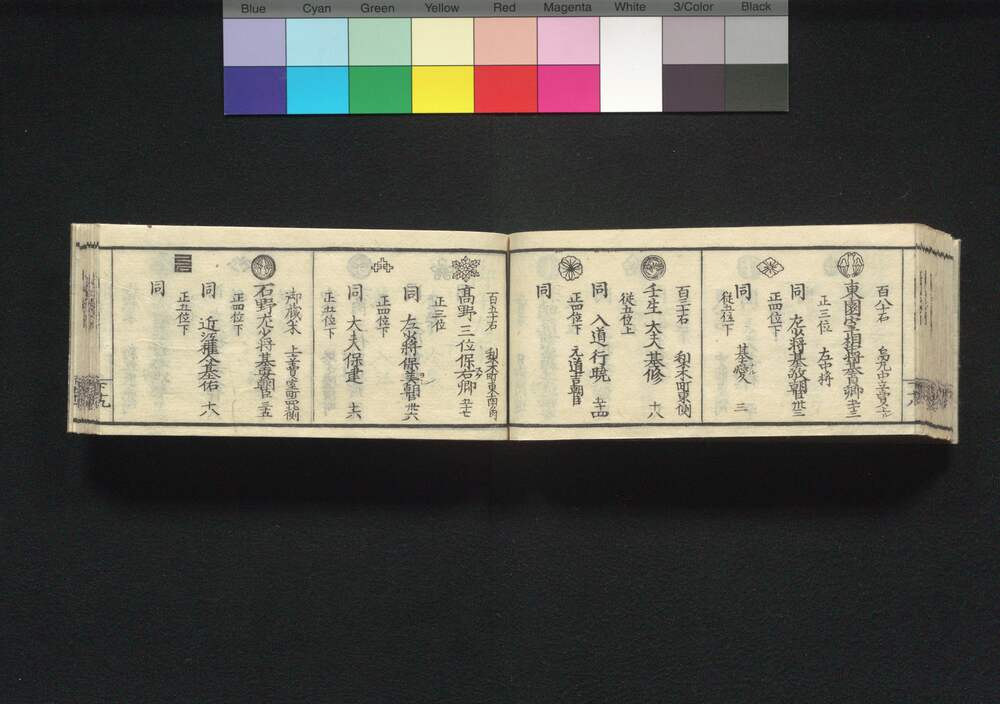 Blue Cyan Green Yellow Red Magenta White 3/Color Black
百八十石 烏丸中立賣上ル
東園宰相中将基貞卿 三十三
正三位 左中将
同 左少将基敬朝臣 廿三
正四位下
同 基愛 三
従五位下
百三十石 梨木町東側
壬生 大夫基修 十八
従五位上
同 入道行暁 五十四
正四位下 元道吉朝臣
同
百五十石 梨木町東南角
髙野 三位保右卿 五十七
正三位
同 左少将保美朝臣 廿六
正四位下
同 大夫保建 十六
正五位下
御蔵米 上立賣室町西側
石野左少将基安朝臣 三十五
正四位下
同 近江権介基佑 十八
正五位下
同